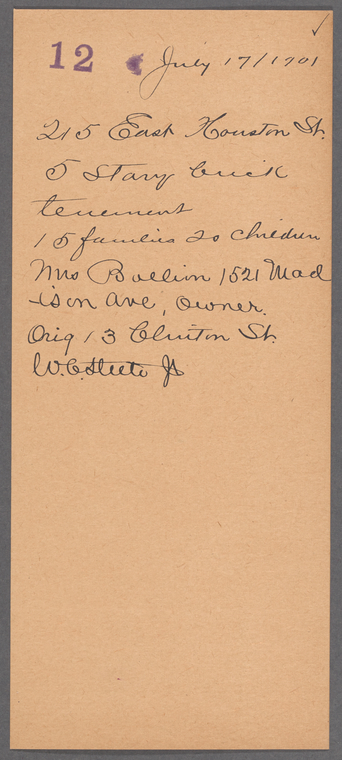 12 July 17/1901
215 East Houston St.
5 Story brick
tenement
15 families 20 children
Mrs Bullion 1521 Mad
ison Ave, owner.
Orig 13 Clinton St.
W.C. Steele Jr